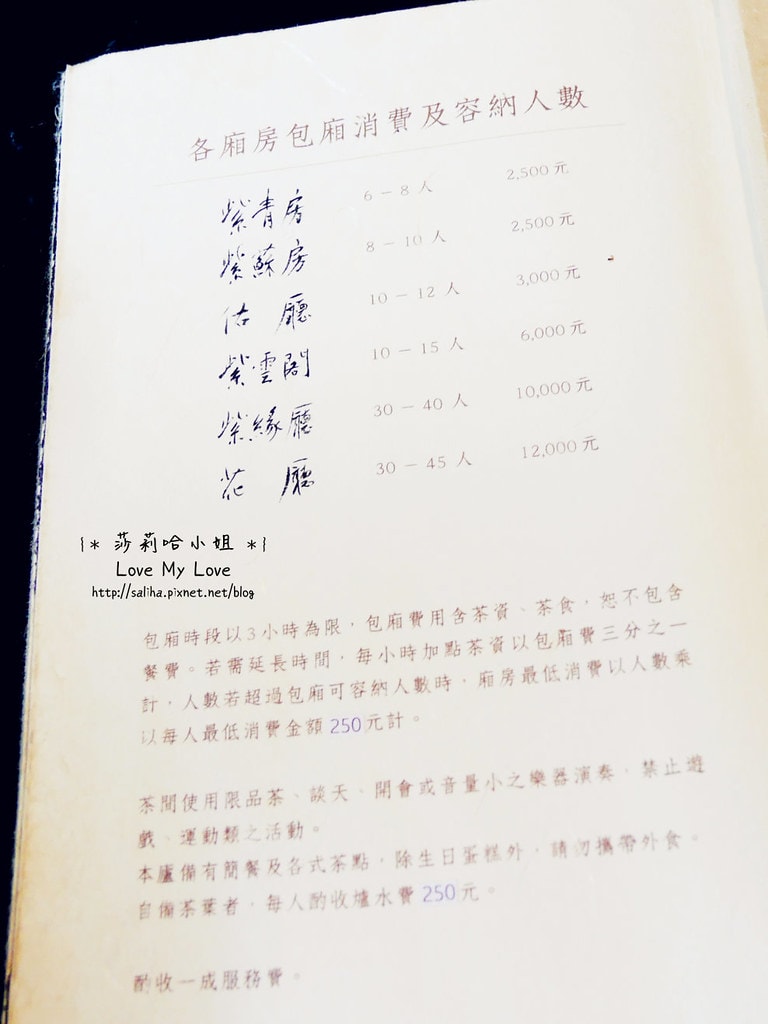 各廂房包廂消費及容納人數
紫青房 6－8人 2,500元
紫蘇房 8－10人 2,500元
估廳 10－12人 3,000元
紫雲閣 10－15人 6,000元
紫緣廳 30－40人 10,000元
花廳 30－45人 12,000元
{* 莎莉哈小姐 *}
Love My Love
http://saliha.pixnet.net/blog
包廂時段以3小時為限，包廂費用含茶資、茶食，恕不包含
餐費。若需延長時間，每小時加點茶資以包廂費三分之一
計，人數若超過包廂可容納人數時，廂房最低消費以人數乘
以每人最低消費金額250元計。
茶間使用限品茶、談天、開會或音量小之樂器演奏，禁止遊
戲、運動類之活動。
本廬備有簡餐及各式茶點，除生日蛋糕外，請勿攜帶外食。
自備茶葉者，每人酌收爐水費250元。
酌收一成服務費。